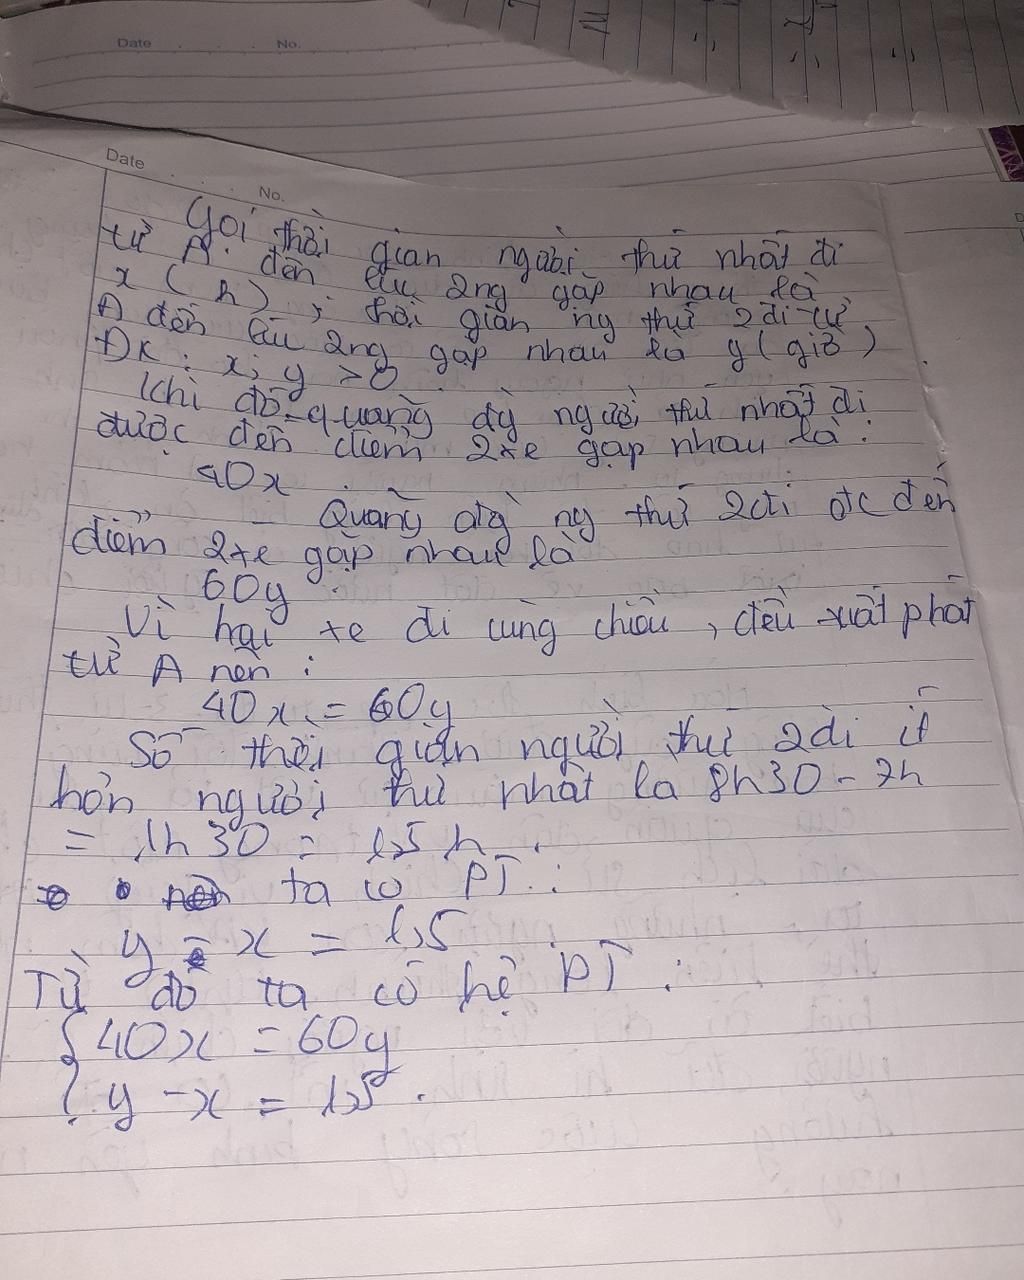 Date No.
Date
No.
Gọi thời gian người thứ nhất đi
từ A đến lúc 2ng gặp nhau là
x (h) ; thời gian ng thứ 2 đi từ
A đến lúc 2ng gặp nhau là y (giờ)
ĐK : x; y > 0
Khi đó quãng đg người thứ nhất đi
được đến điểm 2 xe gặp nhau là :
40x
Quãng đg ng thứ 2 đi đc đến
điểm 2 xe gặp nhau là
60y
Vì hai xe đi cùng chiều, đều xuất phát
từ A nên :
40x = 60y
Số thời gian người thứ 2 đi ít
hơn người thứ nhất là 8h30 - 7h
= 1h30 = 1,5 h
ta có PT :
y - x = 1,5
Từ đó ta có hệ PT :
{ 40x = 60y
y - x = 1,5 .